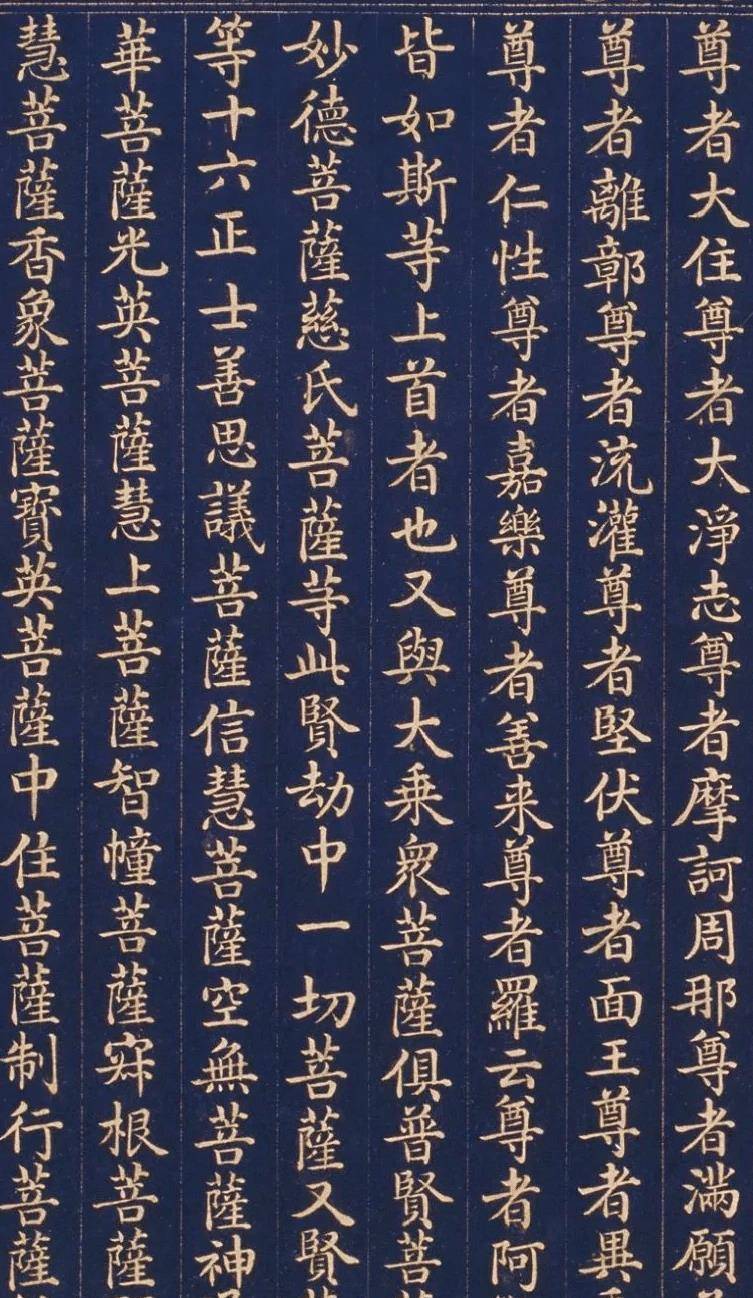 尊者大住尊者大淨志尊者摩訶周那尊者滿願
尊者離鄣尊者流灌尊者堅伏尊者面王尊者異
尊者仁性尊者嘉樂尊者善来尊者羅云尊者阿
皆如斯等上首者也又與大乗衆菩薩俱普賢菩
妙德菩薩慈氏菩薩等此賢劫中一切菩薩又賢
等十六正士善思議菩薩信慧菩薩空無菩薩神
華菩薩光英菩薩慧上菩薩智幢菩薩寂根菩薩
慧菩薩香象菩薩寶英菩薩中住菩薩制行菩薩